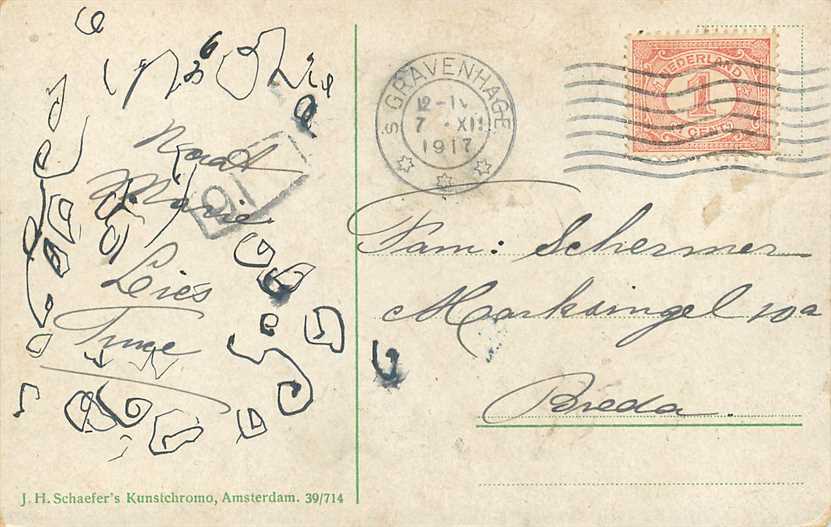 Marie
Lies
J. H. Schaefer's Kunstchromo, Amsterdam. 39/714
'S GRAVENHAGE
12-1V
7 . XII
1917
NEDERLAND
1
CENT
Fam: Schermer
Marksingel 10a
Breda.